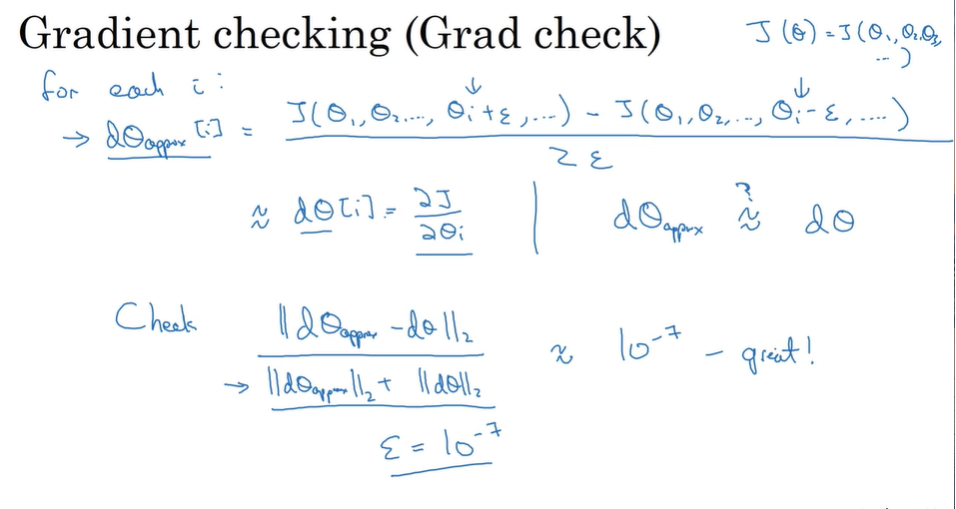 Gradient checking (Grad check)
J(θ) = J(θ₁, θ₂, θ₃, ...)
for each i:
→ dθapprox[i] = (J(θ₁, θ₂, ..., θᵢ+ε, ...) - J(θ₁, θ₂, ..., θᵢ-ε, ....)) / 2ε
≈ dθ[i] = ∂J/∂θᵢ | dθapprox ≈? dθ
Check ||dθapprox - dθ||₂ / (||dθapprox||₂ + ||dθ||₂) ≈ 10⁻⁷ - great!
ε = 10⁻⁷